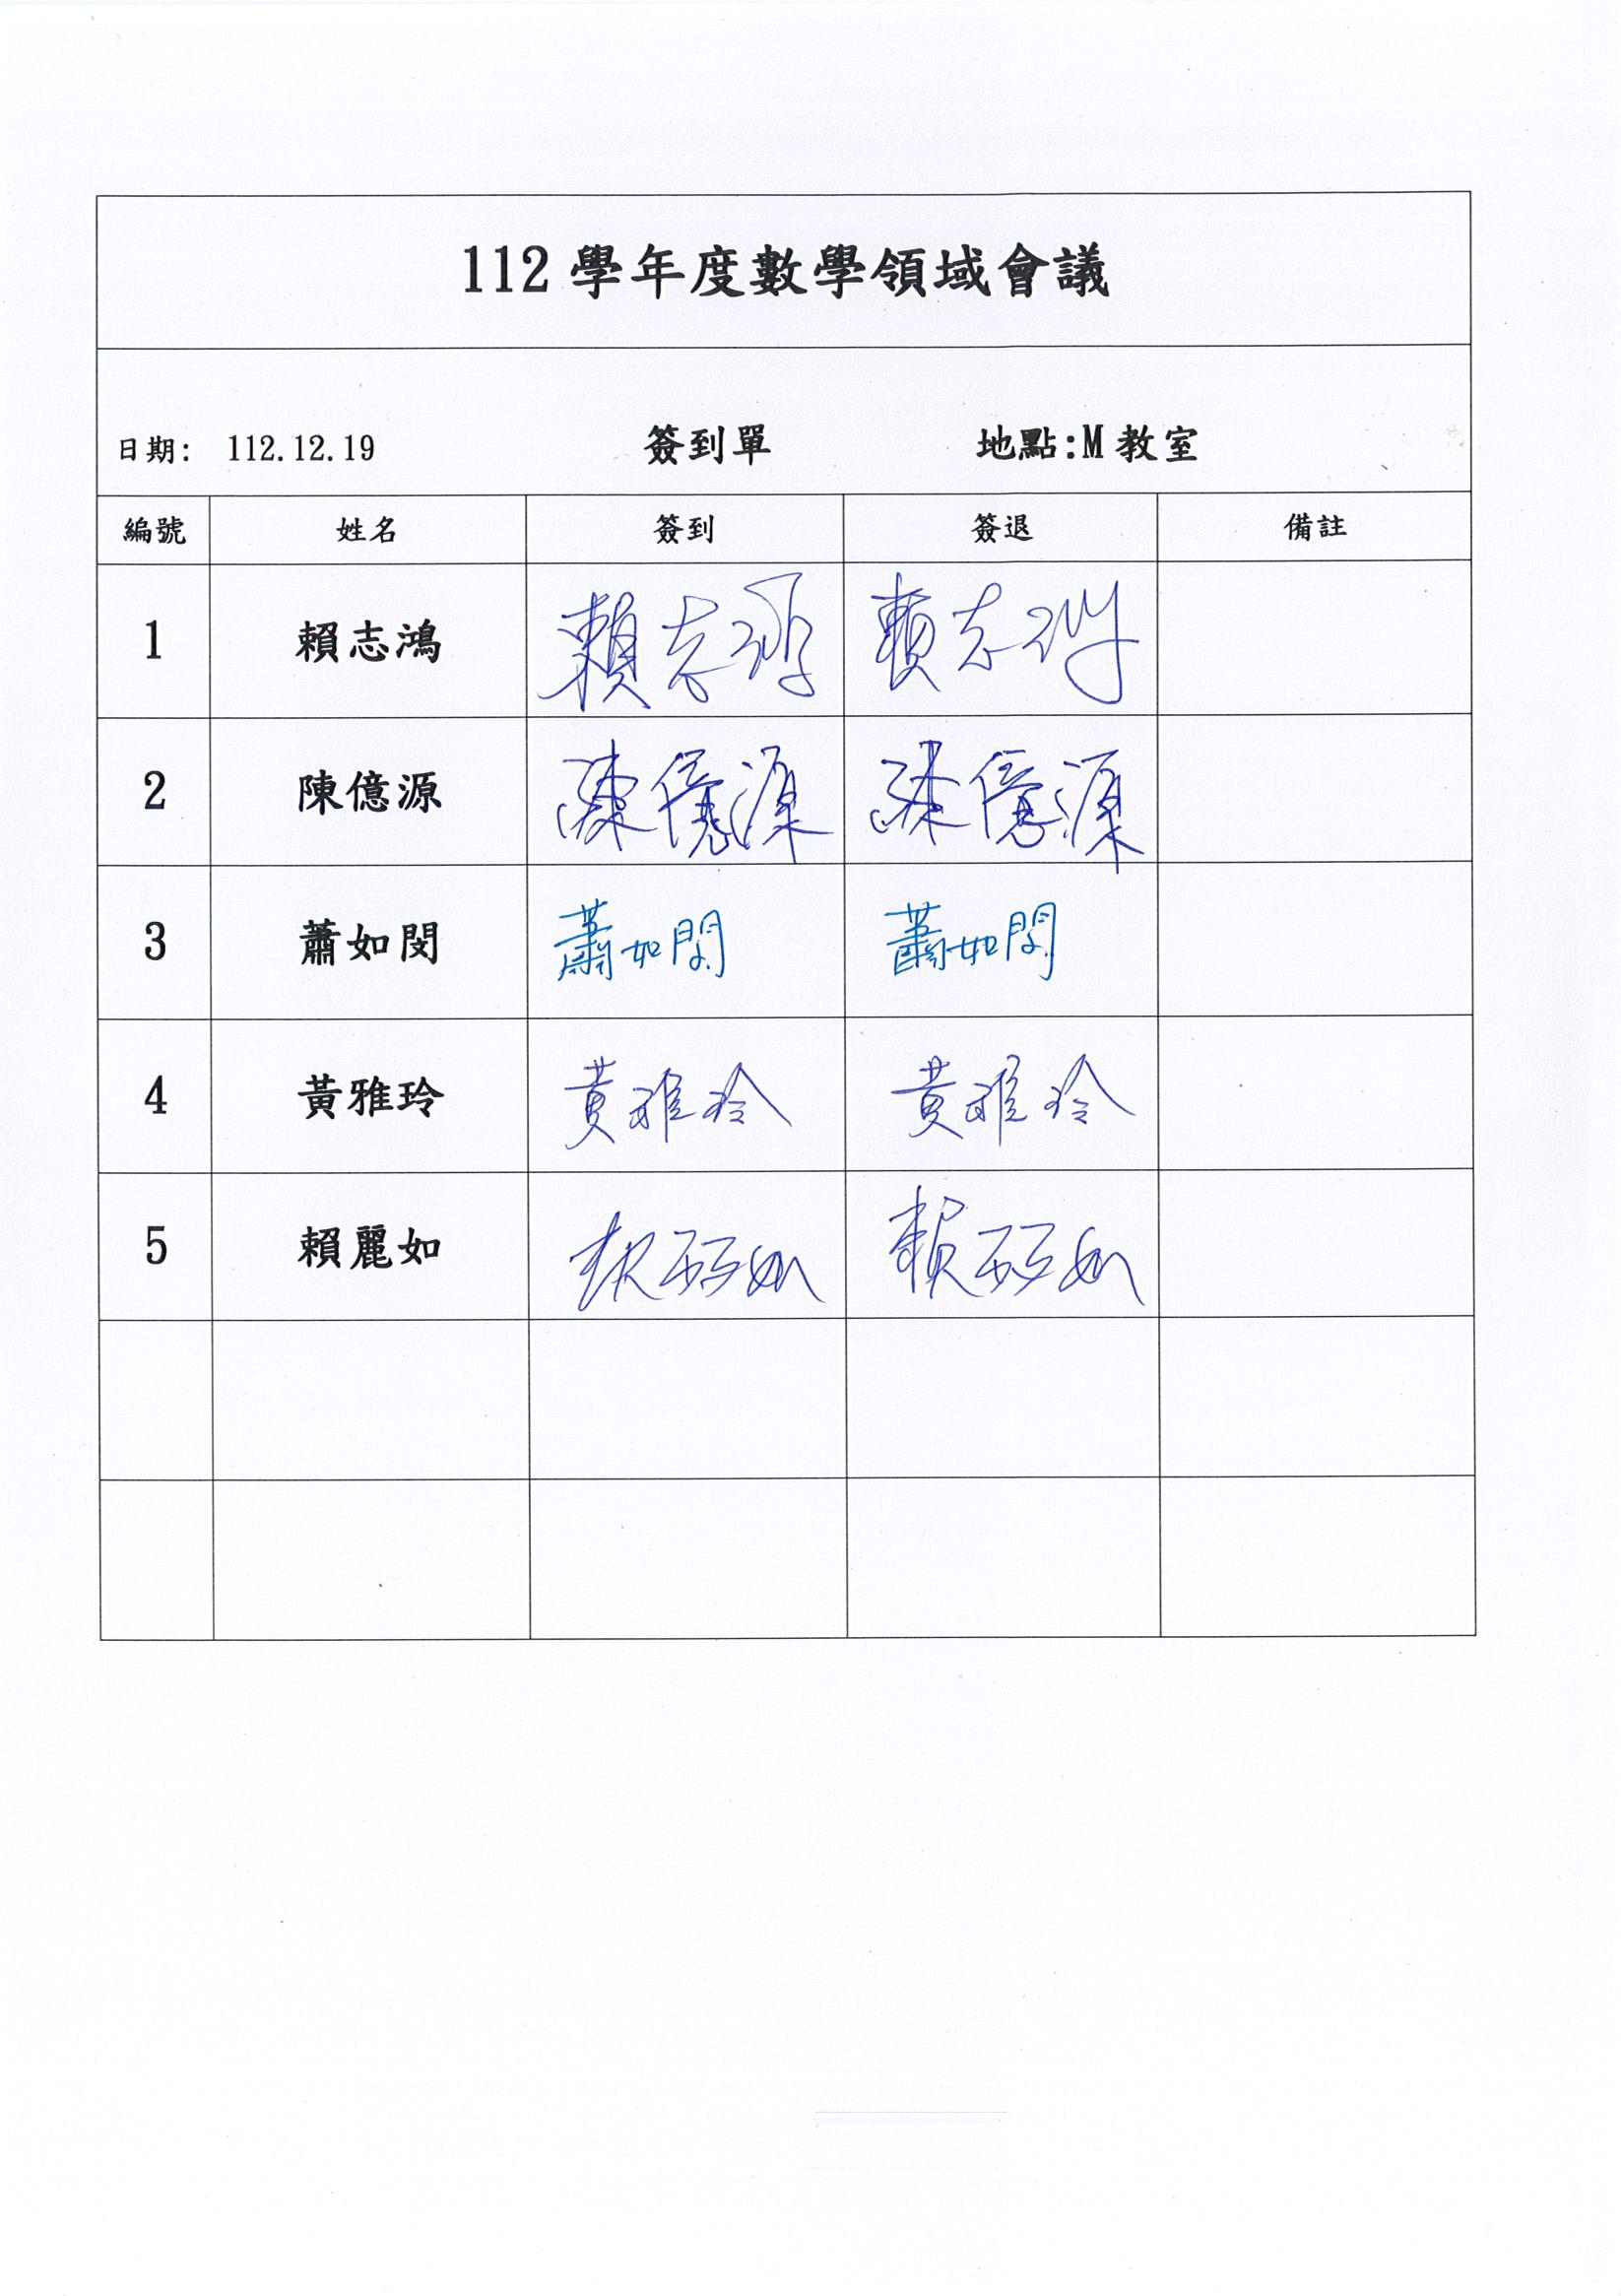 112 學年度數學領域會議
日期: 112.12.19 簽到單 地點:M 教室
編號 姓名 簽到 簽退 備註
1 賴志鴻 賴志鴻 賴志鴻
2 陳億源 陳億源 陳億源
3 蕭如閔 蕭如閔 蕭如閔
4 黃雅玲 黃雅玲 黃雅玲
5 賴麗如 賴麗如 賴麗如